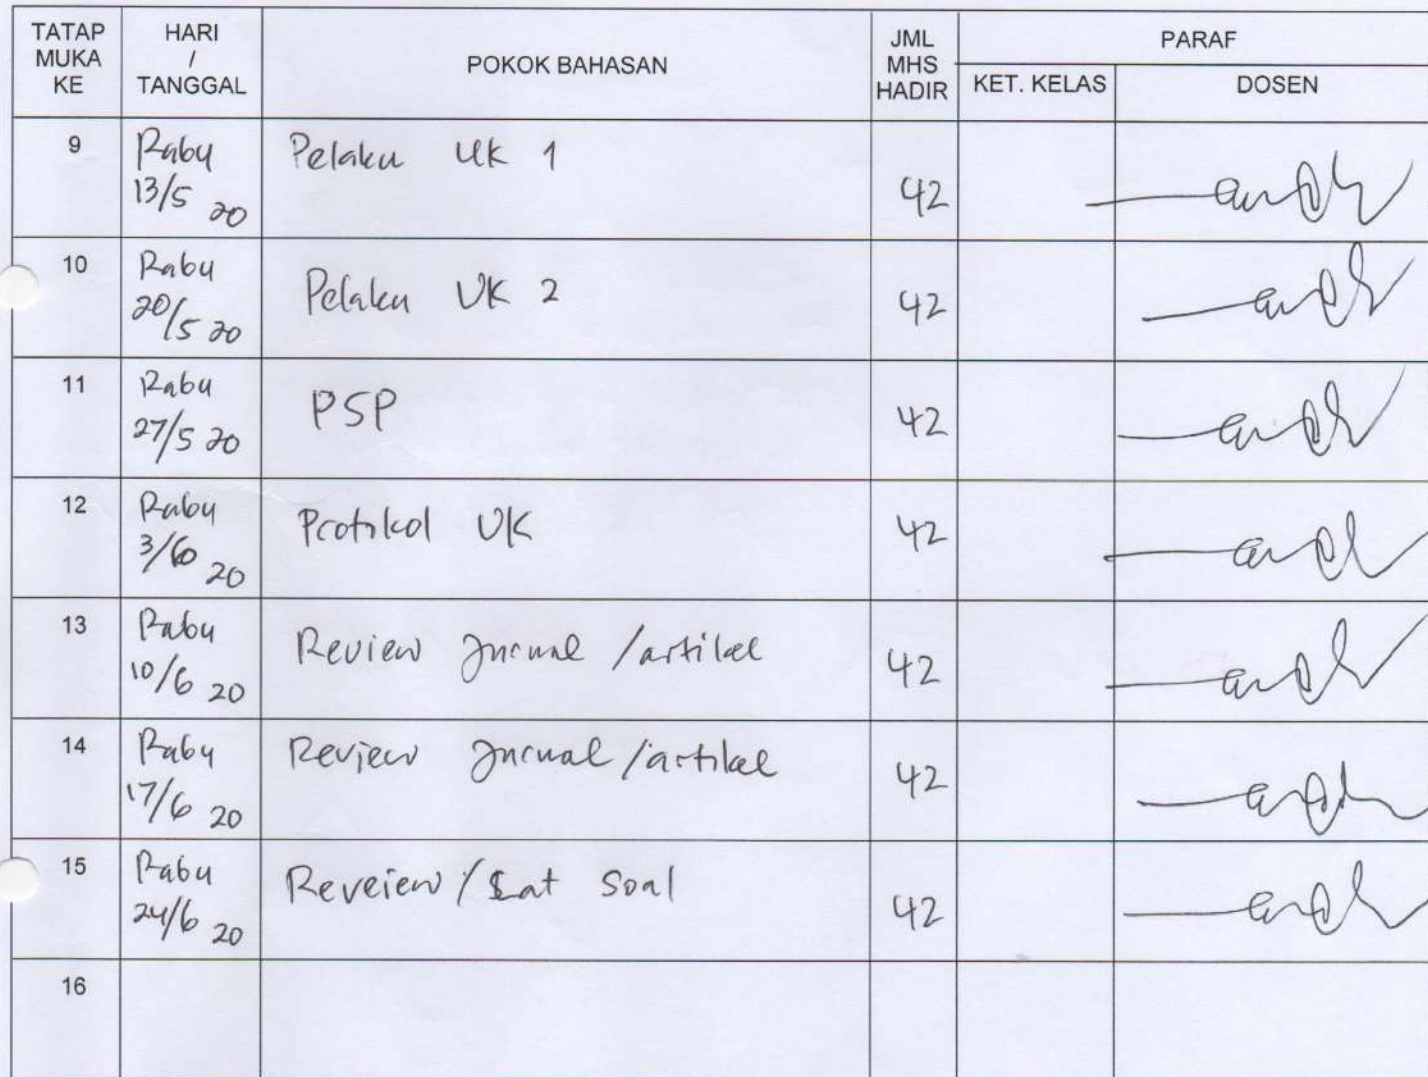 TATAP MUKA KE HARI / TANGGAL POKOK BAHASAN JML MHS HADIR PARAF
KET. KELAS DOSEN
9 Rabu 13/5 20 Pelaku UK 1 42
10 Rabu 20/5 20 Pelaku UK 2 42
11 Rabu 27/5 20 PSP 42
12 Rabu 3/6 20 Protokol UK 42
13 Rabu 10/6 20 Review Jurnal /artikel 42
14 Rabu 17/6 20 Review Jurnal /artikel 42
15 Rabu 24/6 20 Reveiew / Lat soal 42
16